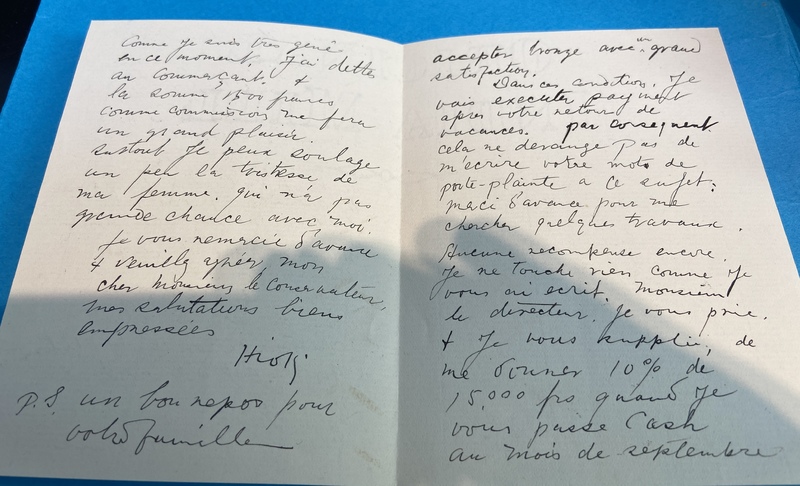 Comme je suis très gené
en ce moment, j'ai dettes
au Commerçant. &
la somme, 1500 francs
comme commission me fera
un grand plaisir.
surtout je peux soulage
un peu la tristesse de
ma femme. qui n'a pas
grande chance avec moi.
Je vous remercie d'avance
& veuillez agréer mon
cher Monsieur le Conservateur,
mes salutations biens
empressées
P.S. un bon repos pour
votre famille
accepter bronze avec un grand
satisfaction.
Dans ces condition, Je
vais executer payment
apres votre retour de
vacances. par consequent
cela ne derange pas de
m'écrire votre mots de
porte-plainte a ce sujet.
merci d'avance pour me
chercher quelques travaux.
Aucune recompense encore.
Je ne touche rien comme Je
vous ai ecrit. Monsieur
le directeur. Je vous prie.
& Je vous supplie, de
me donner 10% de
15,000 frs quand Je
vous passe Cash
au mois de septembre